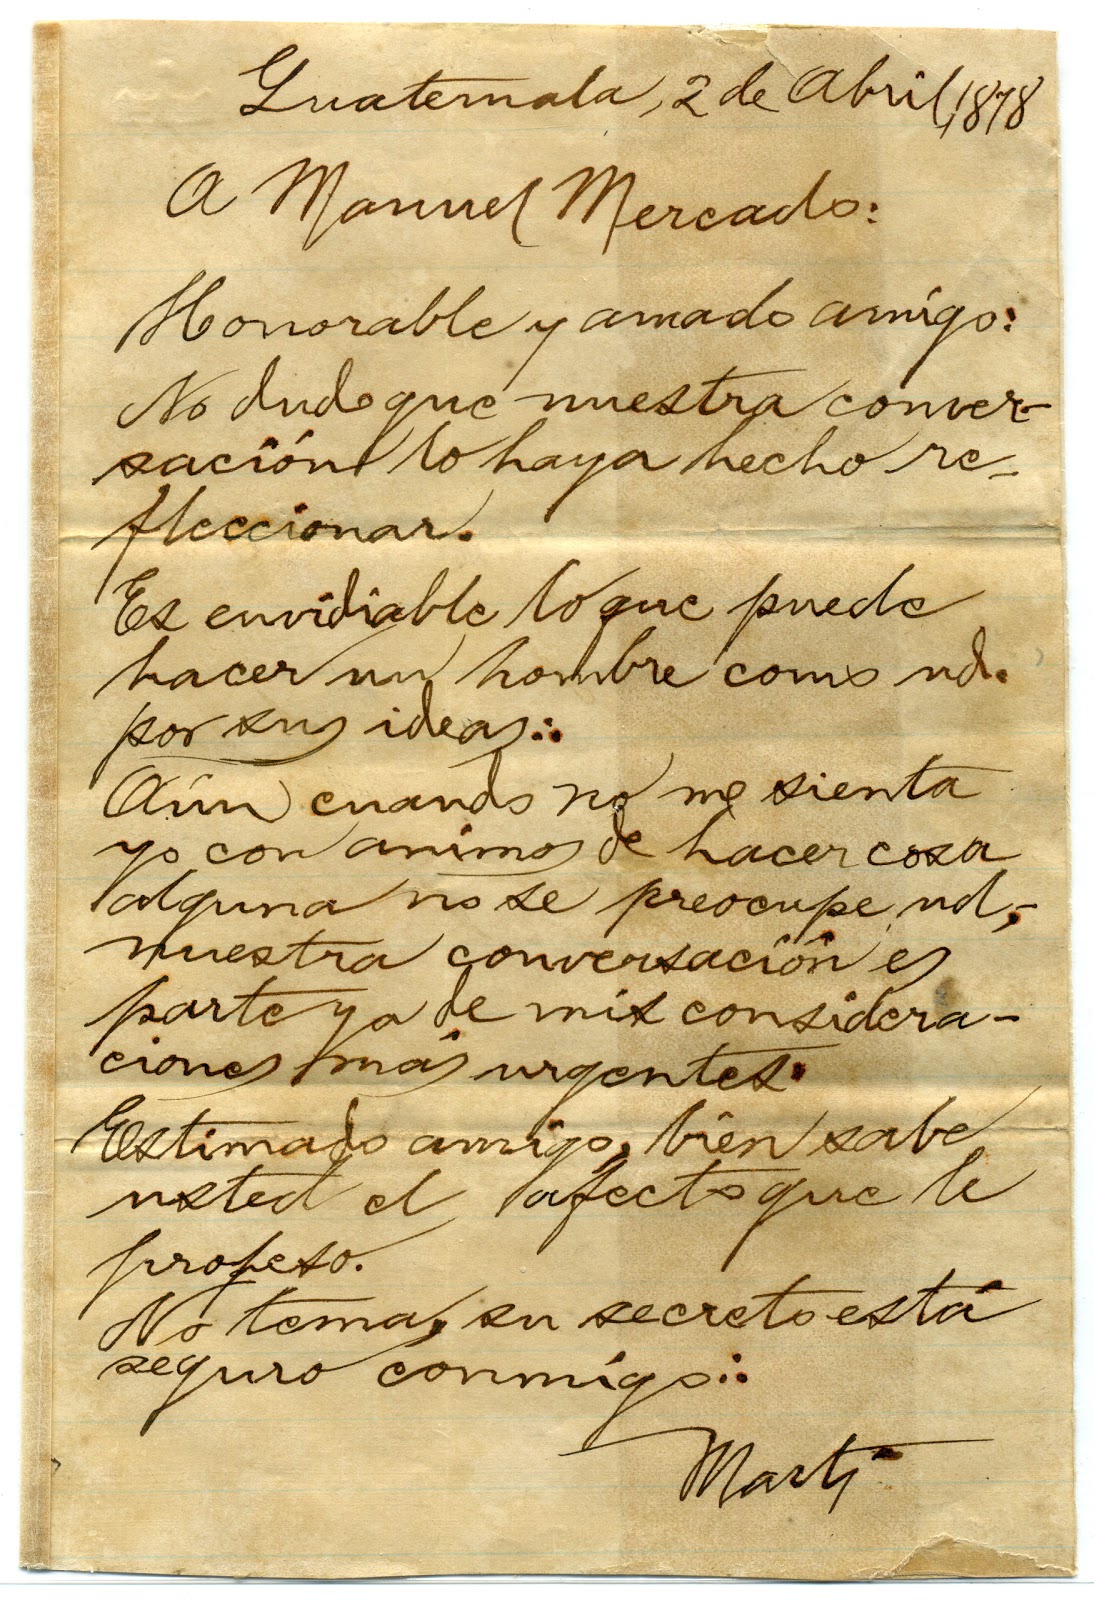 Guatemala, 2 de Abril, 1878
A Manuel Mercado:
Honorable y amado amigo:
No dudo que nuestra conver-
sación lo haya hecho re-
fleccionar.
Es envidiable lo que puede
hacer un hombre como ud.
por sus ideas:.
Aún cuando no me sienta
yo con animos de hacer cosa
alguna no se preocupe ud,-
nuestra conversación es
parte ya de mis considera-
ciones más urgentes.
Estimado amigo, bien sabe
usted el afecto que le
profeso.
No tema, su secreto está
seguro conmigo:.
Martí